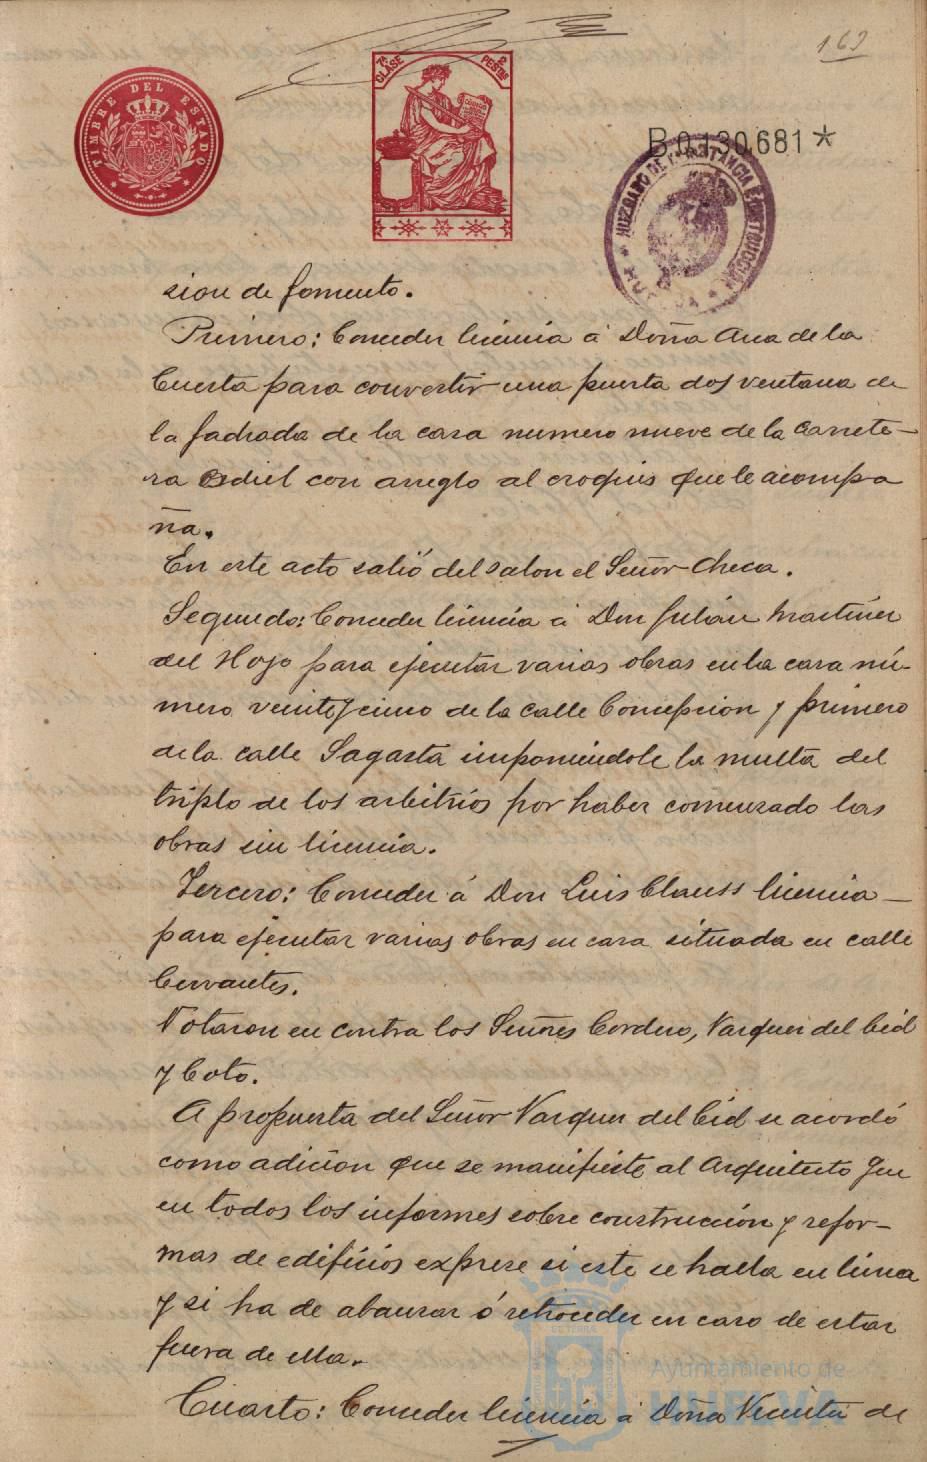 169
TIMBRE DEL ESTADO
7ª CLASE 2 PESTAS
B.0.130.681*
JUZGADO DE 1ª INSTANCIA É INSTRUCCION
HUELVA
sion de fomento.
Primero: Conceder licencia á Doña Ana de la
Cuesta para convertir una puerta dos ventana de
la fachada de la casa numero nueve de la Carrete-
ra Odiel con arreglo al croquis que le acompa
ña.
En este acto salió del salon el Señor Checa.
Segundo: Conceder licencia á Don Julián Martinez
del Hoyo para ejecutar varias obras en la casa nú-
mero veinte y cinco de la calle Concepcion y primero
de la calle Sagasta imponiendole la multa del
triplo de los arbitrios por haber comenzado las
obras sin licencia.
Tercero: Conceder á Don Luis Clauss licencia
para ejecutar varias obras en casa situada en calle
Cervantes.
Votaron en contra los Señores Cordero, Vazquez del Cid
y Coto.
A propuesta del Señor Vazquez del Cid se acordó
como adicion que se manifieste al Arquitecto que
en todos los informes sobre construcción y refor-
mas de edificios exprese si este se halla en linea
y si ha de abanzar ó retroceder en caso de estar
fuera de ella.
Cuarto: Conceder licencia á Doña Vicenta de
Ayuntamiento de
HUELVA